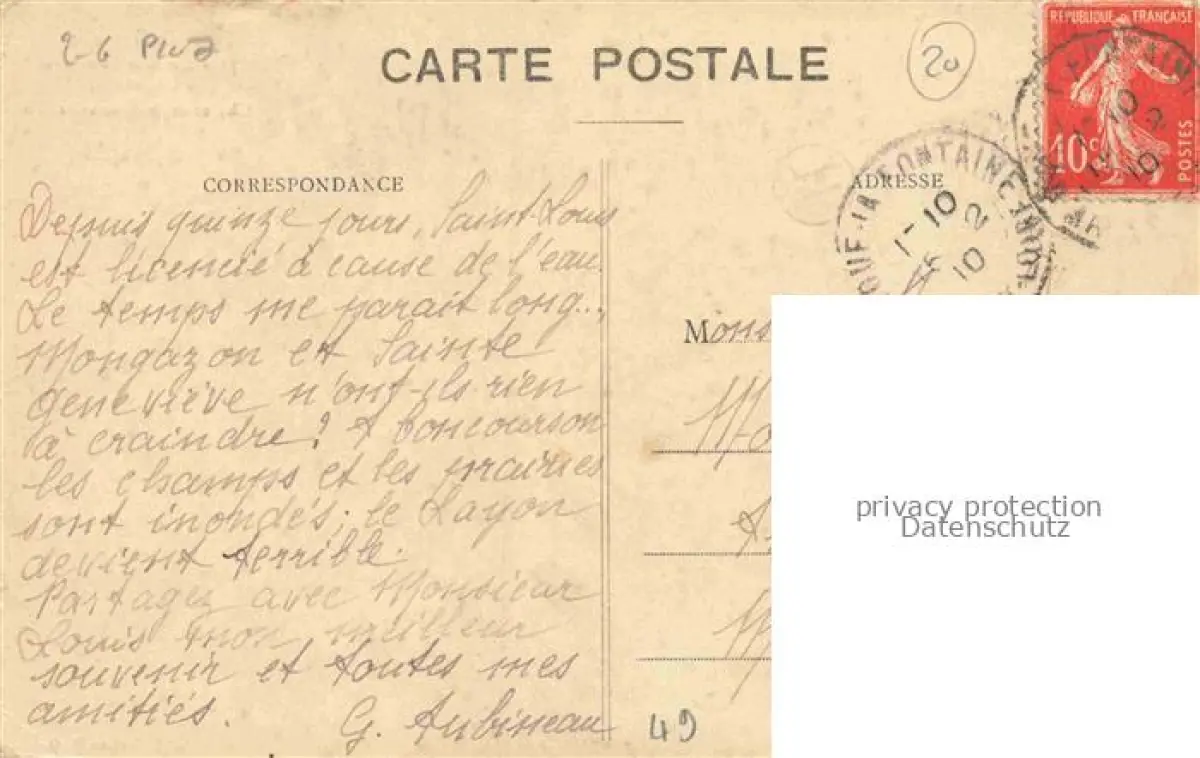 2-6
CARTE POSTALE
20
REPUBLIQUE FRANÇAISE
10c
POSTES
CORRESPONDANCE
ADRESSE
LA FONTAINE
1-10
2
10
Depuis quinze jours, Saint-Louis
est licencié à cause de l'eau.
Le temps me parait long...
Mongazon et Sainte
Geneviève n'ont-ils rien
à craindre? A Concourson
les champs et les prairies
sont inondés; le Layon
devient terrible.
Partagez avec Monsieur
Louis mon meilleur
souvenir et toutes mes
amitiés.
G. Aubineau
Mons
49
privacy protection
Datenschutz